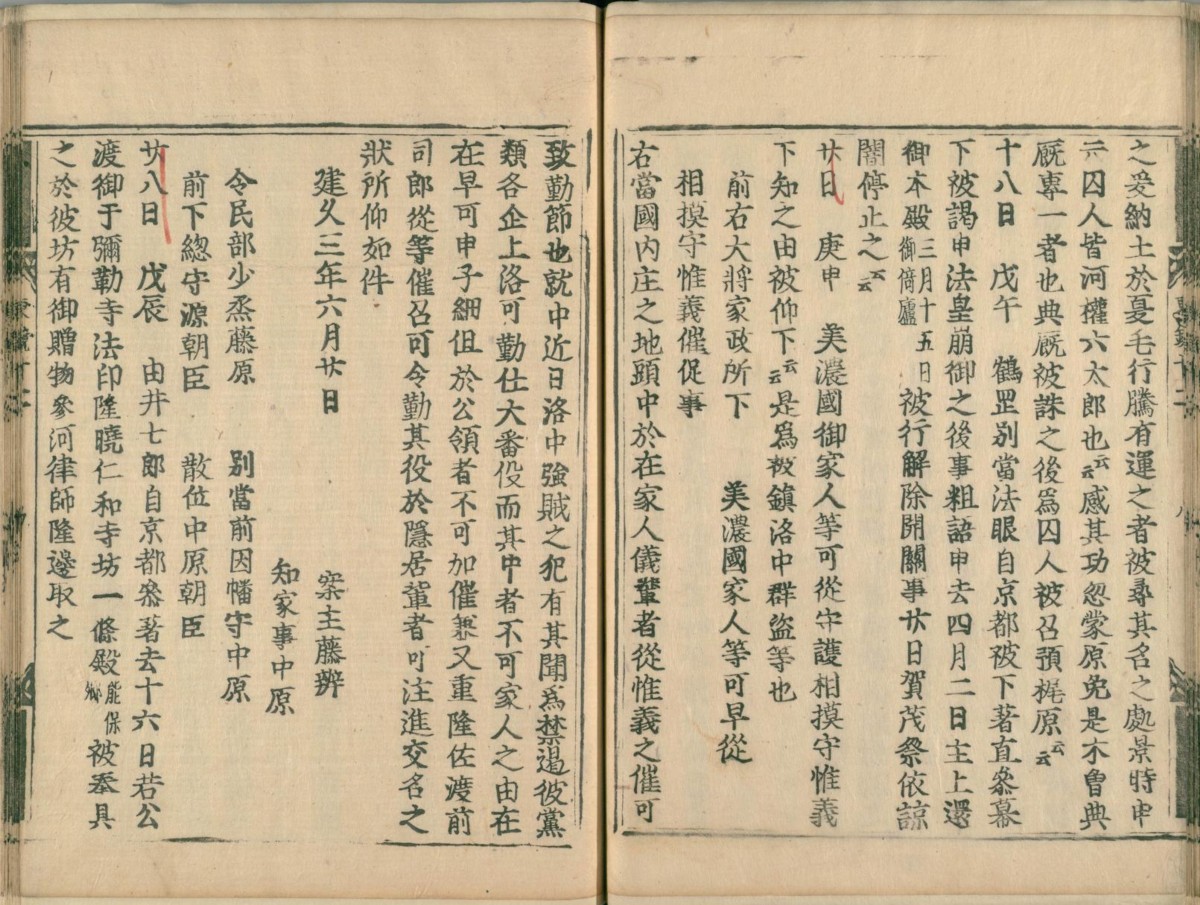 之爰納土於夏毛行騰有運之者被尋其名之處景時申
云囚人皆河權六太郎也云云感其功忽蒙原免是木曽典
厩專一者也典厩被誅之後爲囚人被召預梶原云云
十八日　戊午　鶴罡別當法眼自京都被下著直參幕
下被謁申法皇崩御之後事粗語申去四月二日主上還
御本殿御倚廬三月十五日被行解除開關事廿日賀茂祭依諒
闇停止之云云
廿日　庚申　美濃國御家人等可從守護相摸守惟義
下知之由被仰下云云是爲被鎮洛中群盗等也
前右大將家政所下　美濃國家人等可早從
相摸守惟義催促事
右當國内庄之地頭中於在家人儀輩者從惟義之催可
致勤節也就中近日洛中強賊之犯有其聞爲禁遏彼黨
類各企上洛可勤仕大番役而其中者不可家人之由在
在早可申子細但於公領者不可加催兼又重隆佐渡前
司郎從等催召可令勤其役於隱居輩者可注進交名之
狀所仰如件
建久三年六月廿日
案主藤辨
知家事中原
令民部少烝藤原　別當前因幡守中原
前下緫守源朝臣　散位中原朝臣
廿八日　戊辰　由井七郎自京都參著去十六日若公
渡御于彌勒寺法印隆曉仁和寺坊一條殿能保卿被奉具
之於彼坊有御贈物參河律師隆邊取之